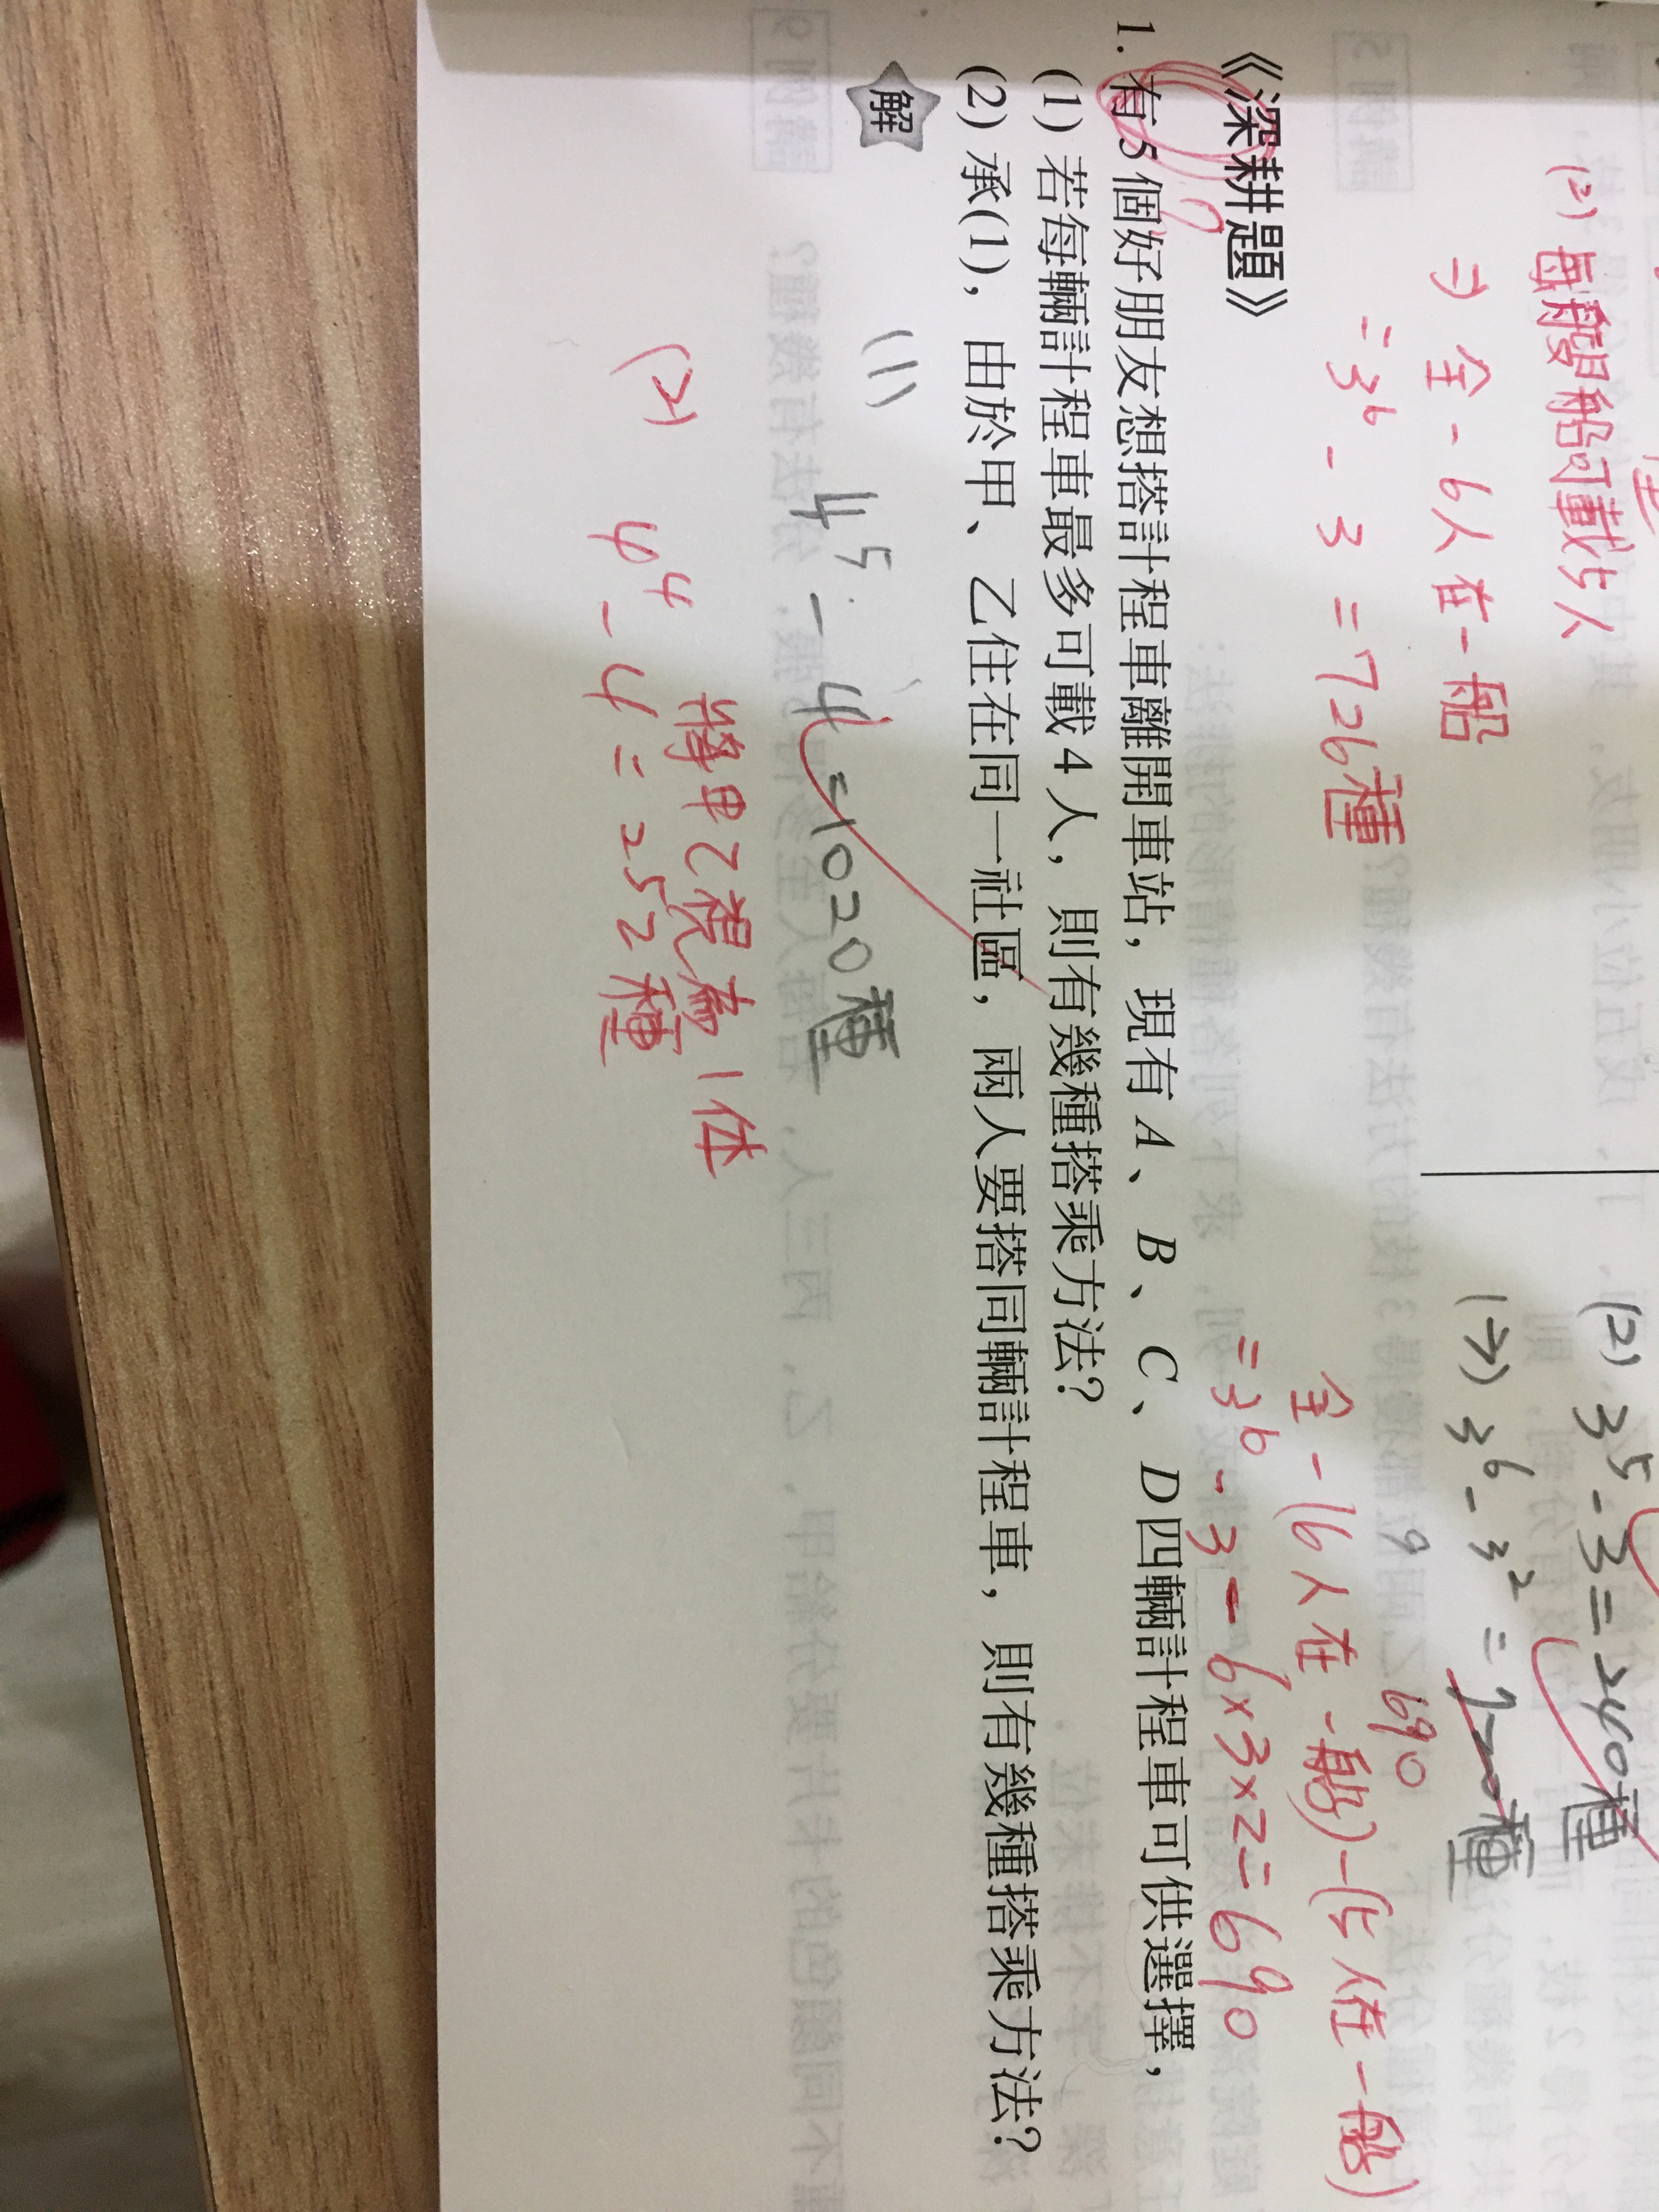 (2) 每艘船可載5人
⇒ 全 - 6人在一船
= 3⁶ - 3 = 726種
(2) 3⁵ - 3 = 240種
(3) 3⁶ - 3² =
690
全 - (6人在一船) - (5人在一船)
= 3⁶ - 3 - 6×3×2 = 690
《深耕題》
1. 有 5 個好朋友想搭計程車離開車站，現有 A、B、C、D 四輛計程車可供選擇，
(1) 若每輛計程車最多可載 4 人，則有幾種搭乘方法？
(2) 承(1)，由於甲、乙住在同一社區，兩人要搭同輛計程車，則有幾種搭乘方法？
解
(1) 4⁵ - 4 = 1020種
將甲乙視為1体
(2) 4⁴ - 4 = 252種